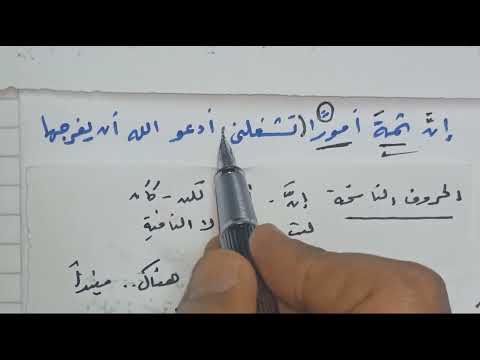 إنَّ ثمةَ أمورًا (تشغلني أدعو الله أن يفرجها
الحروف الناسخة إنَّ - لكن - كأن
ليت لا النافية
هناك .. مبتدأ